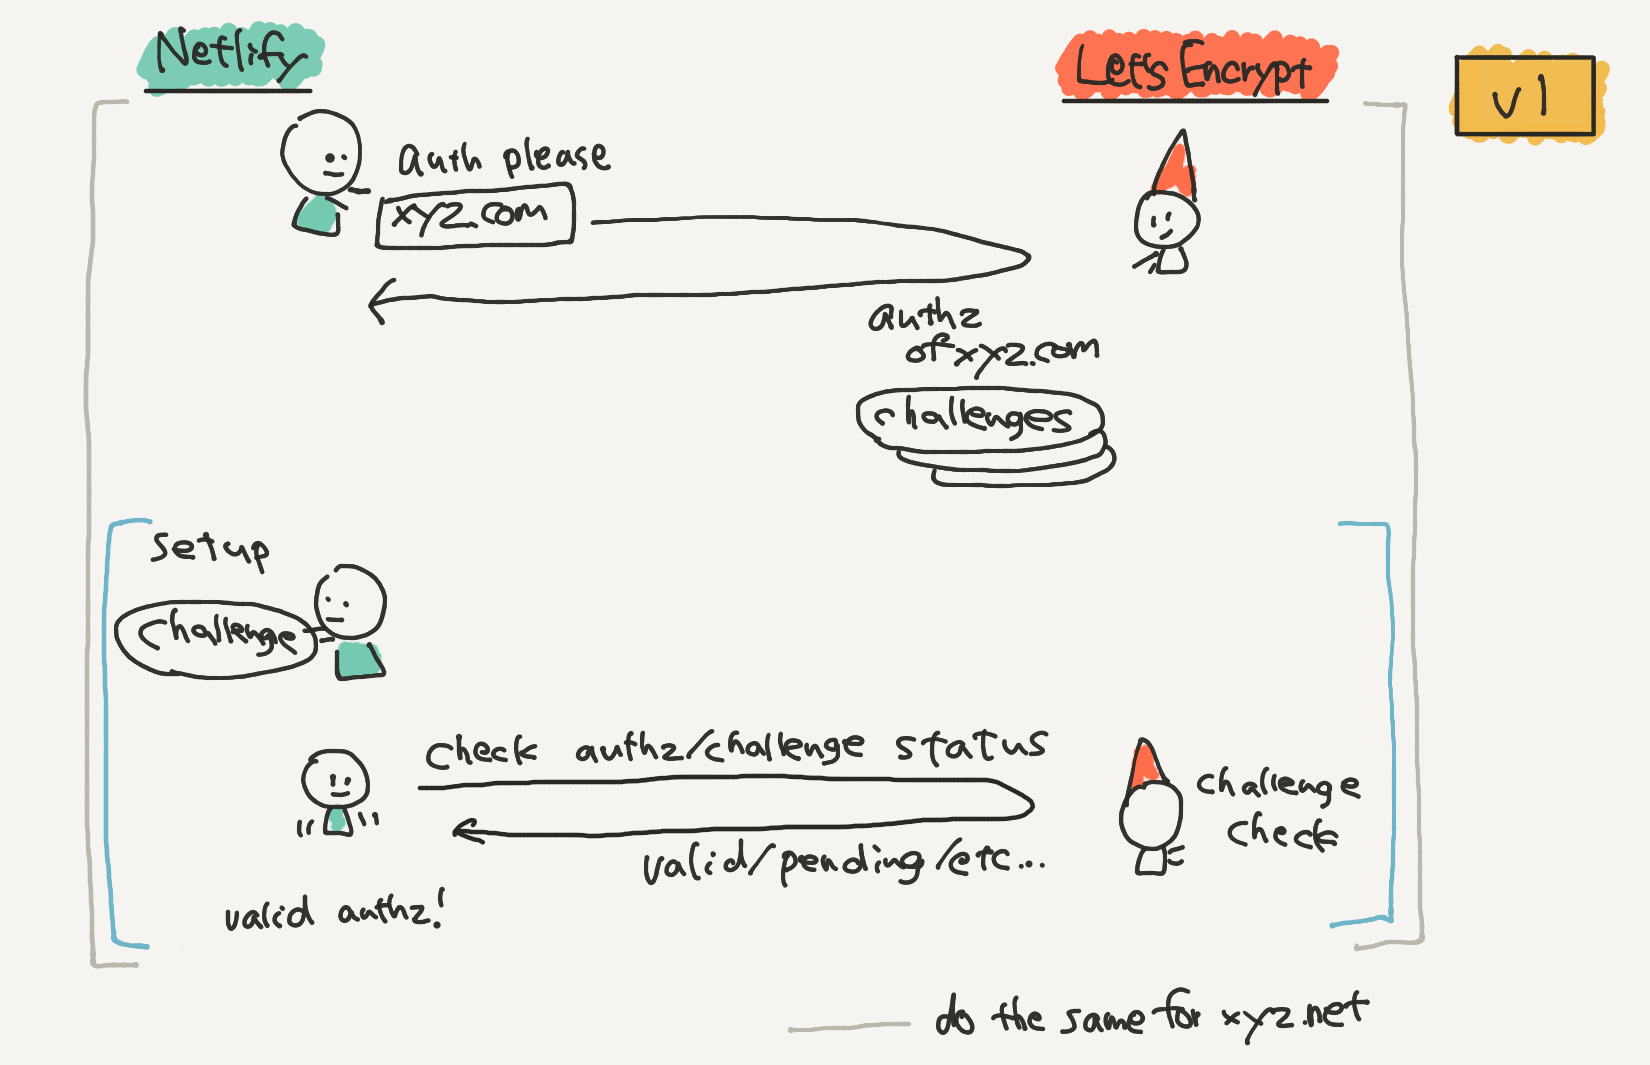 Netlify
Let's Encrypt
v1
auth please
xyz.com
authz
of xyz.com
challenges
setup
challenge
check authz/challenge status
challenge
check
valid/pending/etc...
valid authz!
do the same for xyz.net